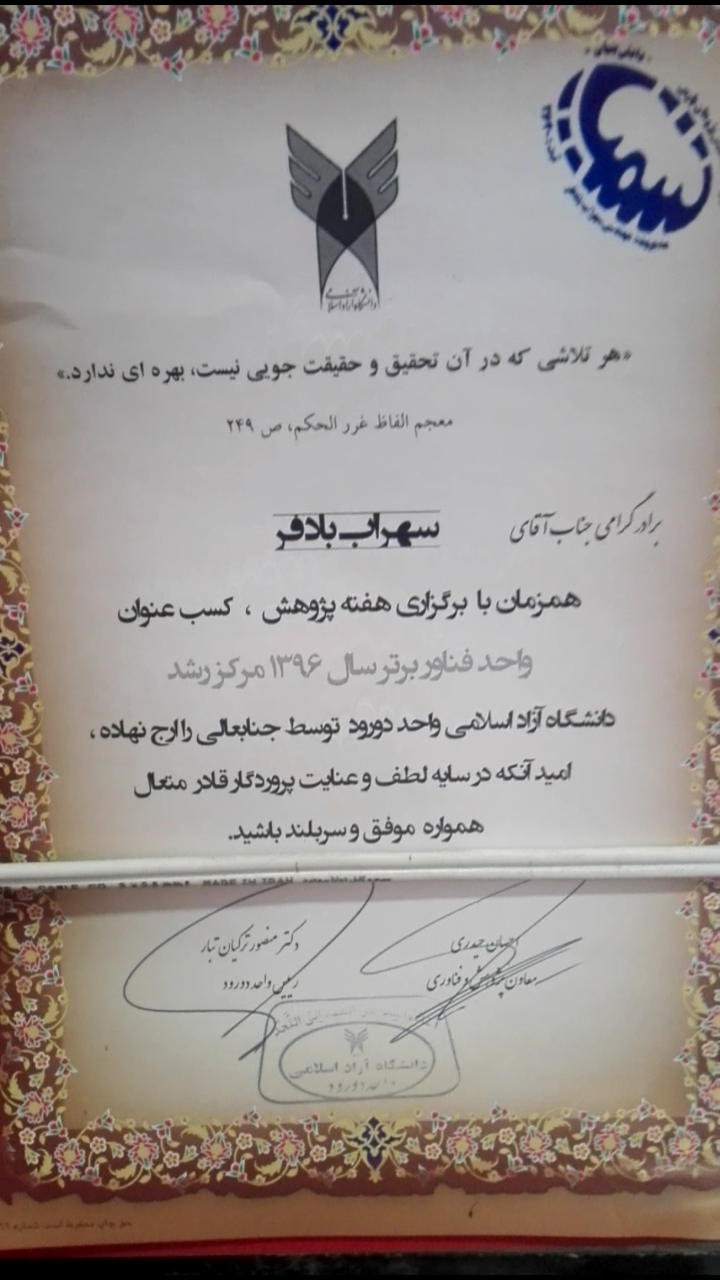 سمت
دانشگاه آزاد اسلامی
«هر تلاشی که در آن تحقیق و حقیقت جویی نیست، بهره ای ندارد.»
معجم الفاظ غرر الحکم، ص ۲۴۹
برادر گرامی جناب آقای سهراب بادفر
همزمان با برگزاری هفته پژوهش ، کسب عنوان
واحد فناور برتر سال ۱۳۹۶ مرکز رشد
دانشگاه آزاد اسلامی واحد دورود توسط جنابعالی را ارج نهاده ،
امید آنکه در سایه لطف و عنایت پروردگار قادر متعال
همواره موفق و سربلند باشید.
MADE IN IRAN
احسان حیدری
معاون پژوهش و فناوری
دکتر منصور ترکیان تبار
رییس واحد دورود
دانشگاه آزاد اسلامی
واحد دورود
حق چاپ محفوظ است شماره